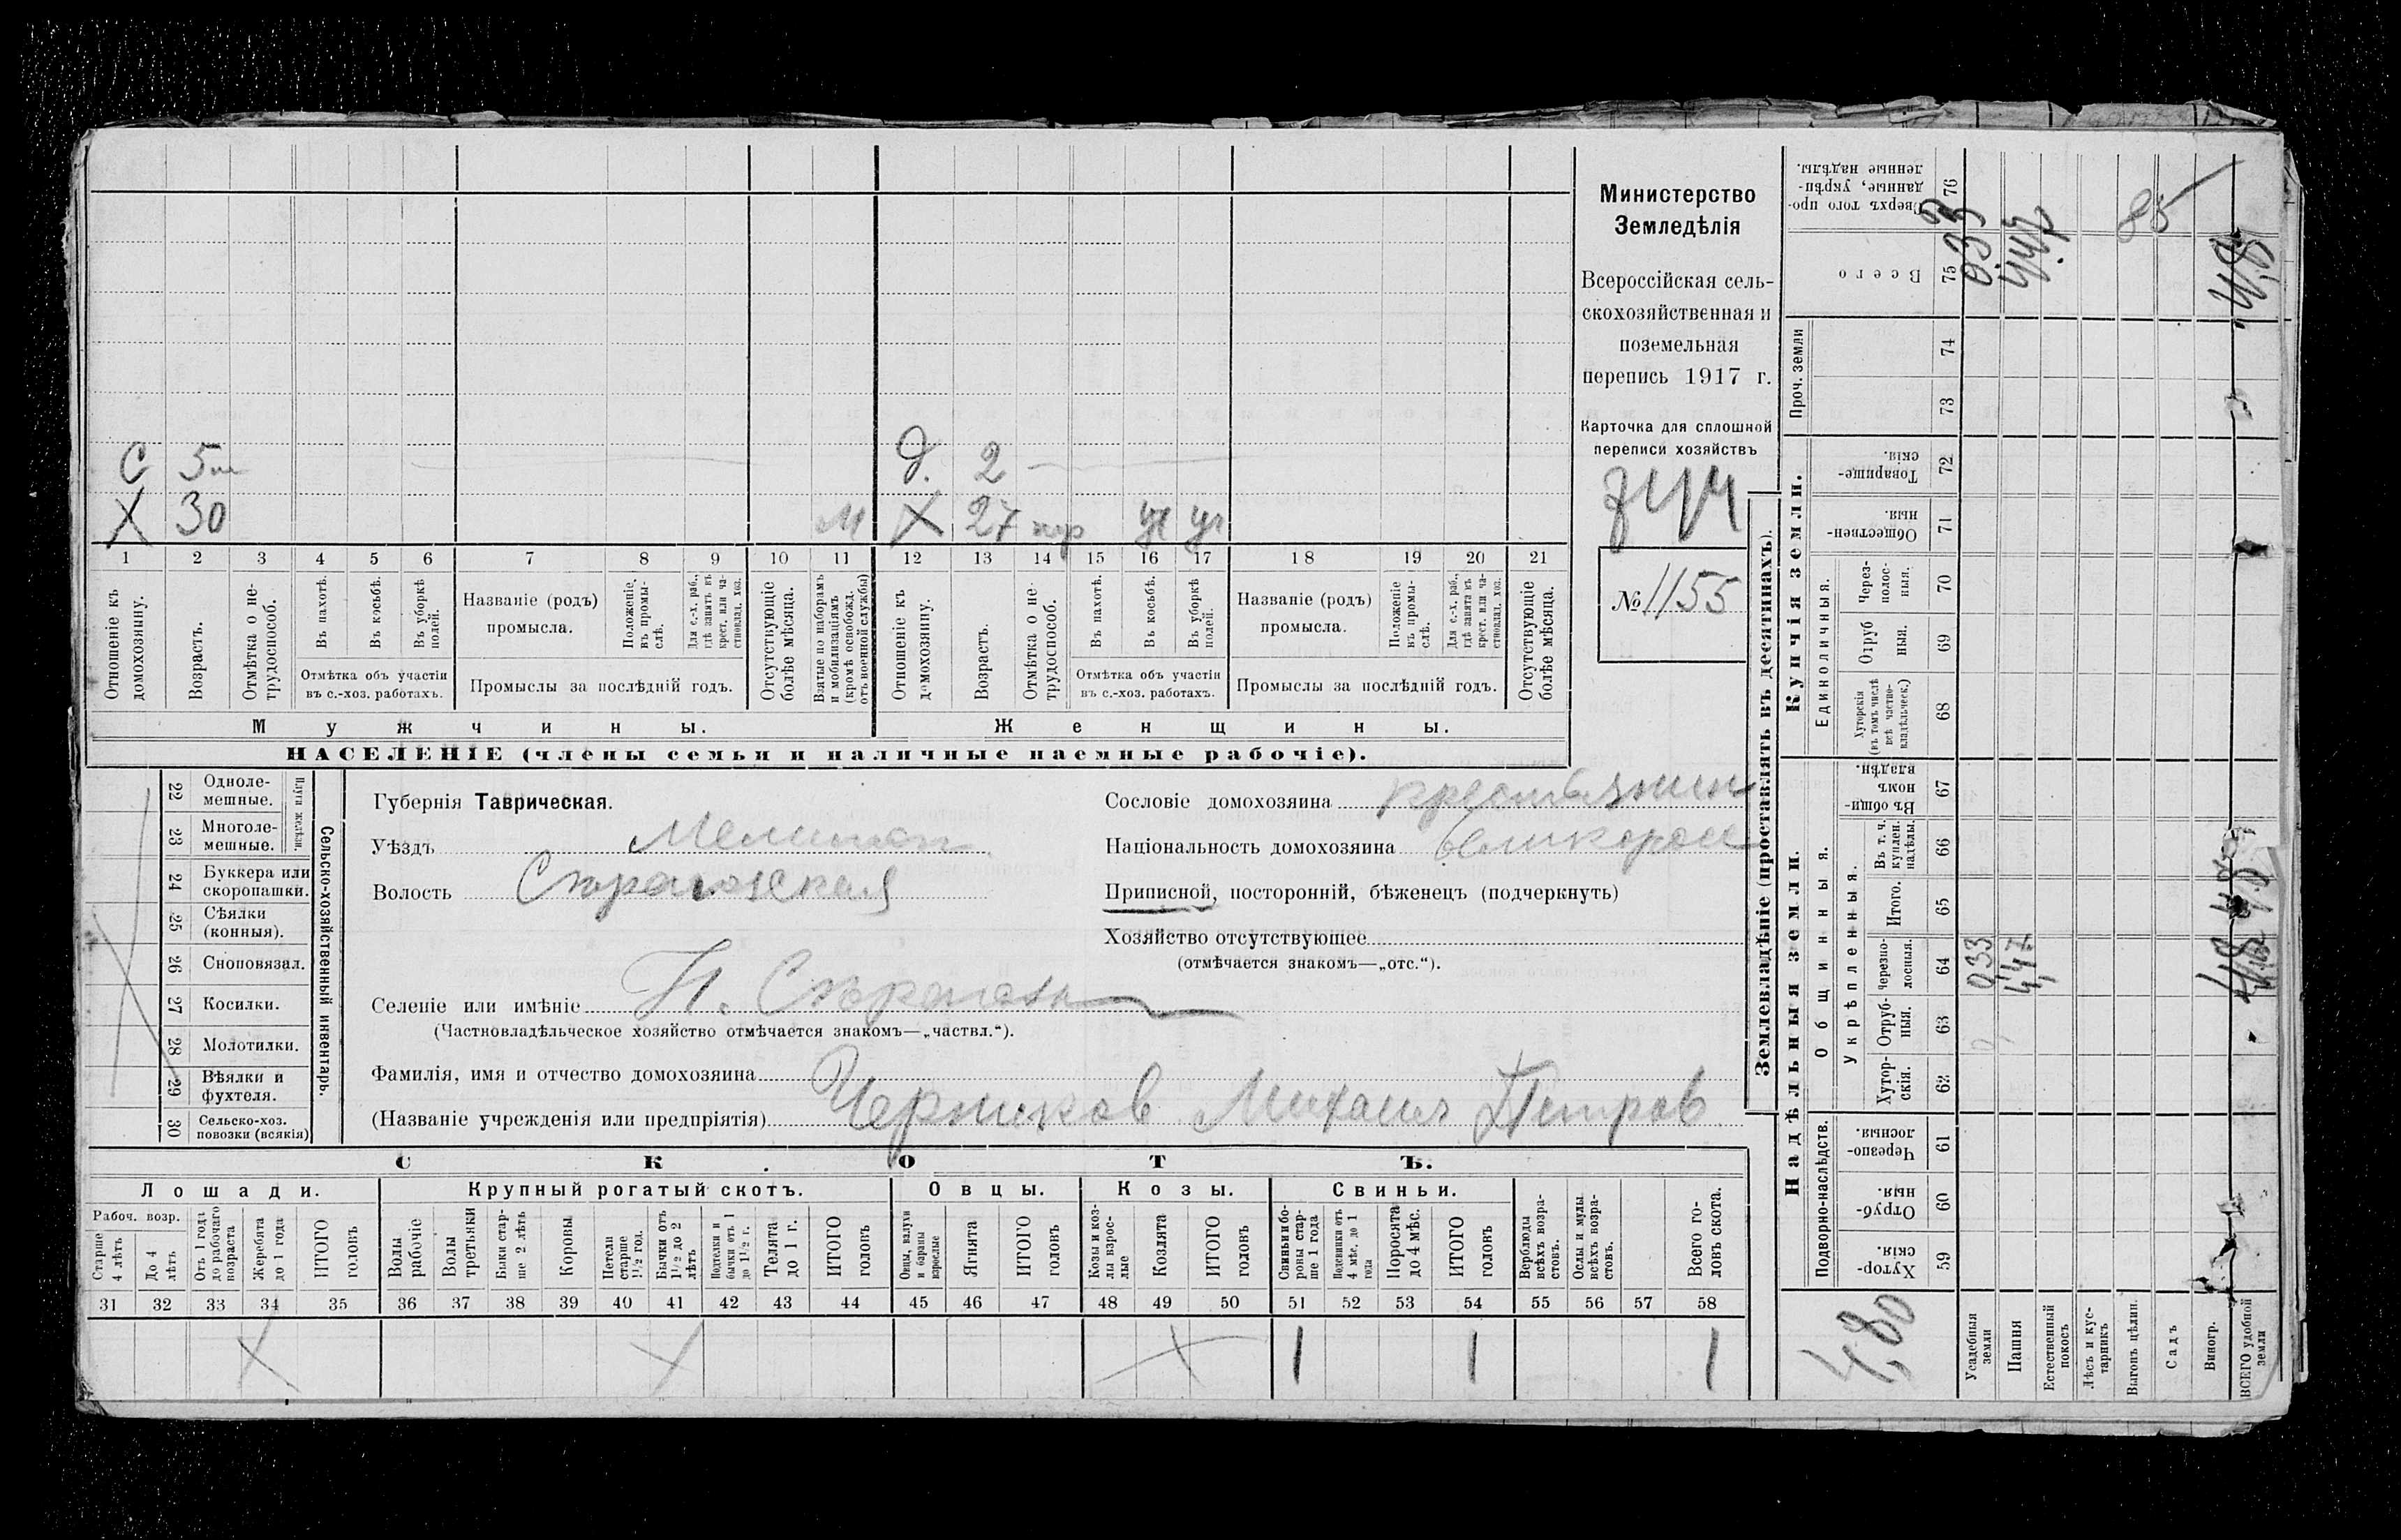 Министерство
Земледѣлія
Всероссійская сель-
скохозяйственная и
поземельная
перепись 1917 г.
Карточка для сплошной
переписи хозяйствъ
№ 1155
С 5
Х 30 м
д. 2
Х 27
1 2 3 4 5 6 7 8 9 10 11 12 13 14 15 16 17 18 19 20 21
Отношеніе къ домохозяину.
Возрастъ.
Отмѣтка о не-трудоспособ.
Въ пахотѣ.
Въ косьбѣ.
Въ уборкѣ полей.
Отмѣтка объ участіи
въ с.-хоз. работахъ.
Названіе (родъ)
промысла.
Положеніе въ промы-слѣ.
Для с.-х. раб., гдѣ занятъ въ крест. или ча-стновлад. хоз.
Промыслы за послѣдній годъ.
Отсутствующіе болѣе мѣсяца.
Взятые по наборамъ и мобилизаціямъ (кромѣ освобожд. отъ военной службы)
Отношеніе къ домохозяину.
Возрастъ.
Отмѣтка о не-трудоспособ.
Въ пахотѣ.
Въ косьбѣ.
Въ уборкѣ полей.
Отмѣтка объ участіи
въ с.-хоз. работахъ.
Названіе (родъ)
промысла.
Положеніе въ промы-слѣ.
Для с.-х. раб., гдѣ занята въ крест. или ча-стновлад. хоз.
Промыслы за послѣдній годъ.
Отсутствующіе болѣе мѣсяца.
Мужчины.
Женщины.
НАСЕЛЕНІЕ (члены семьи и наличные наемные рабочіе).
Сельско-хозяйственный инвентарь.
Плуги желѣзн.
22 Одноле-мешные.
23 Многоле-мешные.
24 Буккера или скоропашки.
25 Сѣялки (конныя).
26 Сноповязал.
27 Косилки.
28 Молотилки.
29 Вѣялки и фухтеля.
30 Сельско-хоз. повозки (всякія)
Губернія Таврическая.
Уѣздъ Мелитоп
Волость
Селеніе или имѣніе
(Частновладѣльческое хозяйство отмѣчается знакомъ—„частвл.“).
Фамилія, имя и отчество домохозяина
(Названіе учрежденія или предпріятія) Черников Михаил Петров
Сословіе домохозяина крестьянин
Національность домохозяина великоросс
Приписной, посторонній, бѣженецъ (подчеркнуть)
Хозяйство отсутствующее
(отмѣчается знакомъ—„отс.“).
СКОТЪ.
Лошади.
Крупный рогатый скотъ.
Овцы.
Козы.
Свиньи.
Рабоч. возр.
Старше 4 лѣтъ
До 4 лѣтъ
Отъ 1 года до рабочаго возраста
Жеребята до 1 года
ИТОГО головъ
Волы рабочіе
Волы третьяки
Быки стар-ше 2 лѣтъ
Коровы
Нетели старше 1½ год.
Бычки отъ 1½ до 2 лѣтъ
Подтелки и бычки отъ 1 до 1½ г.
Телята до 1 г.
ИТОГО головъ
Овцы, валухи и бараны взрослые
Ягнята
ИТОГО головъ
Козы и коз-лы взрос-лые
Козлята
ИТОГО головъ
Свиньи и бо-ровы стар-ше 1 года
Подсвинки отъ 4 мѣс. до 1 года
Поросята до 4 мѣс.
ИТОГО головъ
Верблюды всѣхъ возра-стовъ.
Ослы и мулы всѣхъ возра-стовъ.
Всего го-ловъ скота.
31 32 33 34 35 36 37 38 39 40 41 42 43 44 45 46 47 48 49 50 51 52 53 54 55 56 57 58
1 1 1
Землевладѣніе (проставлять въ десятинахъ).
Надѣльныя земли.
Купчія земли.
Проч. земли
Подворно-наслѣдств.
Общинныя.
Укрѣпленныя.
Единоличныя.
59 Хутор-скія.
60 Отруб-ныя.
61 Черезпо-лосныя.
62 Хутор-скія.
63 Отруб-ныя.
64 Черезпо-лосныя.
65 Итого.
66 Въ т. ч. куплен. надѣлы.
67 Въ общин-номъ владѣн.
68 Хуторскія (въ томъ числѣ всѣ частно-владѣльческ.)
69 Отруб ныя.
70 Через-полос-ныя.
71 Обществен-ныя.
72 Товарище-скія.
73
74
75 Всего
76 Сверхъ того про-данные, укрѣп-ленные надѣлы.
4,80
Усадебныя земли 0,33 0,33
Пашня 4,47
Естественный покосъ
Лѣсъ и кус-тарникъ
Выгонъ цѣлин.
Садъ
Виногр.
ВСЕГО удобной земли 4,8
85